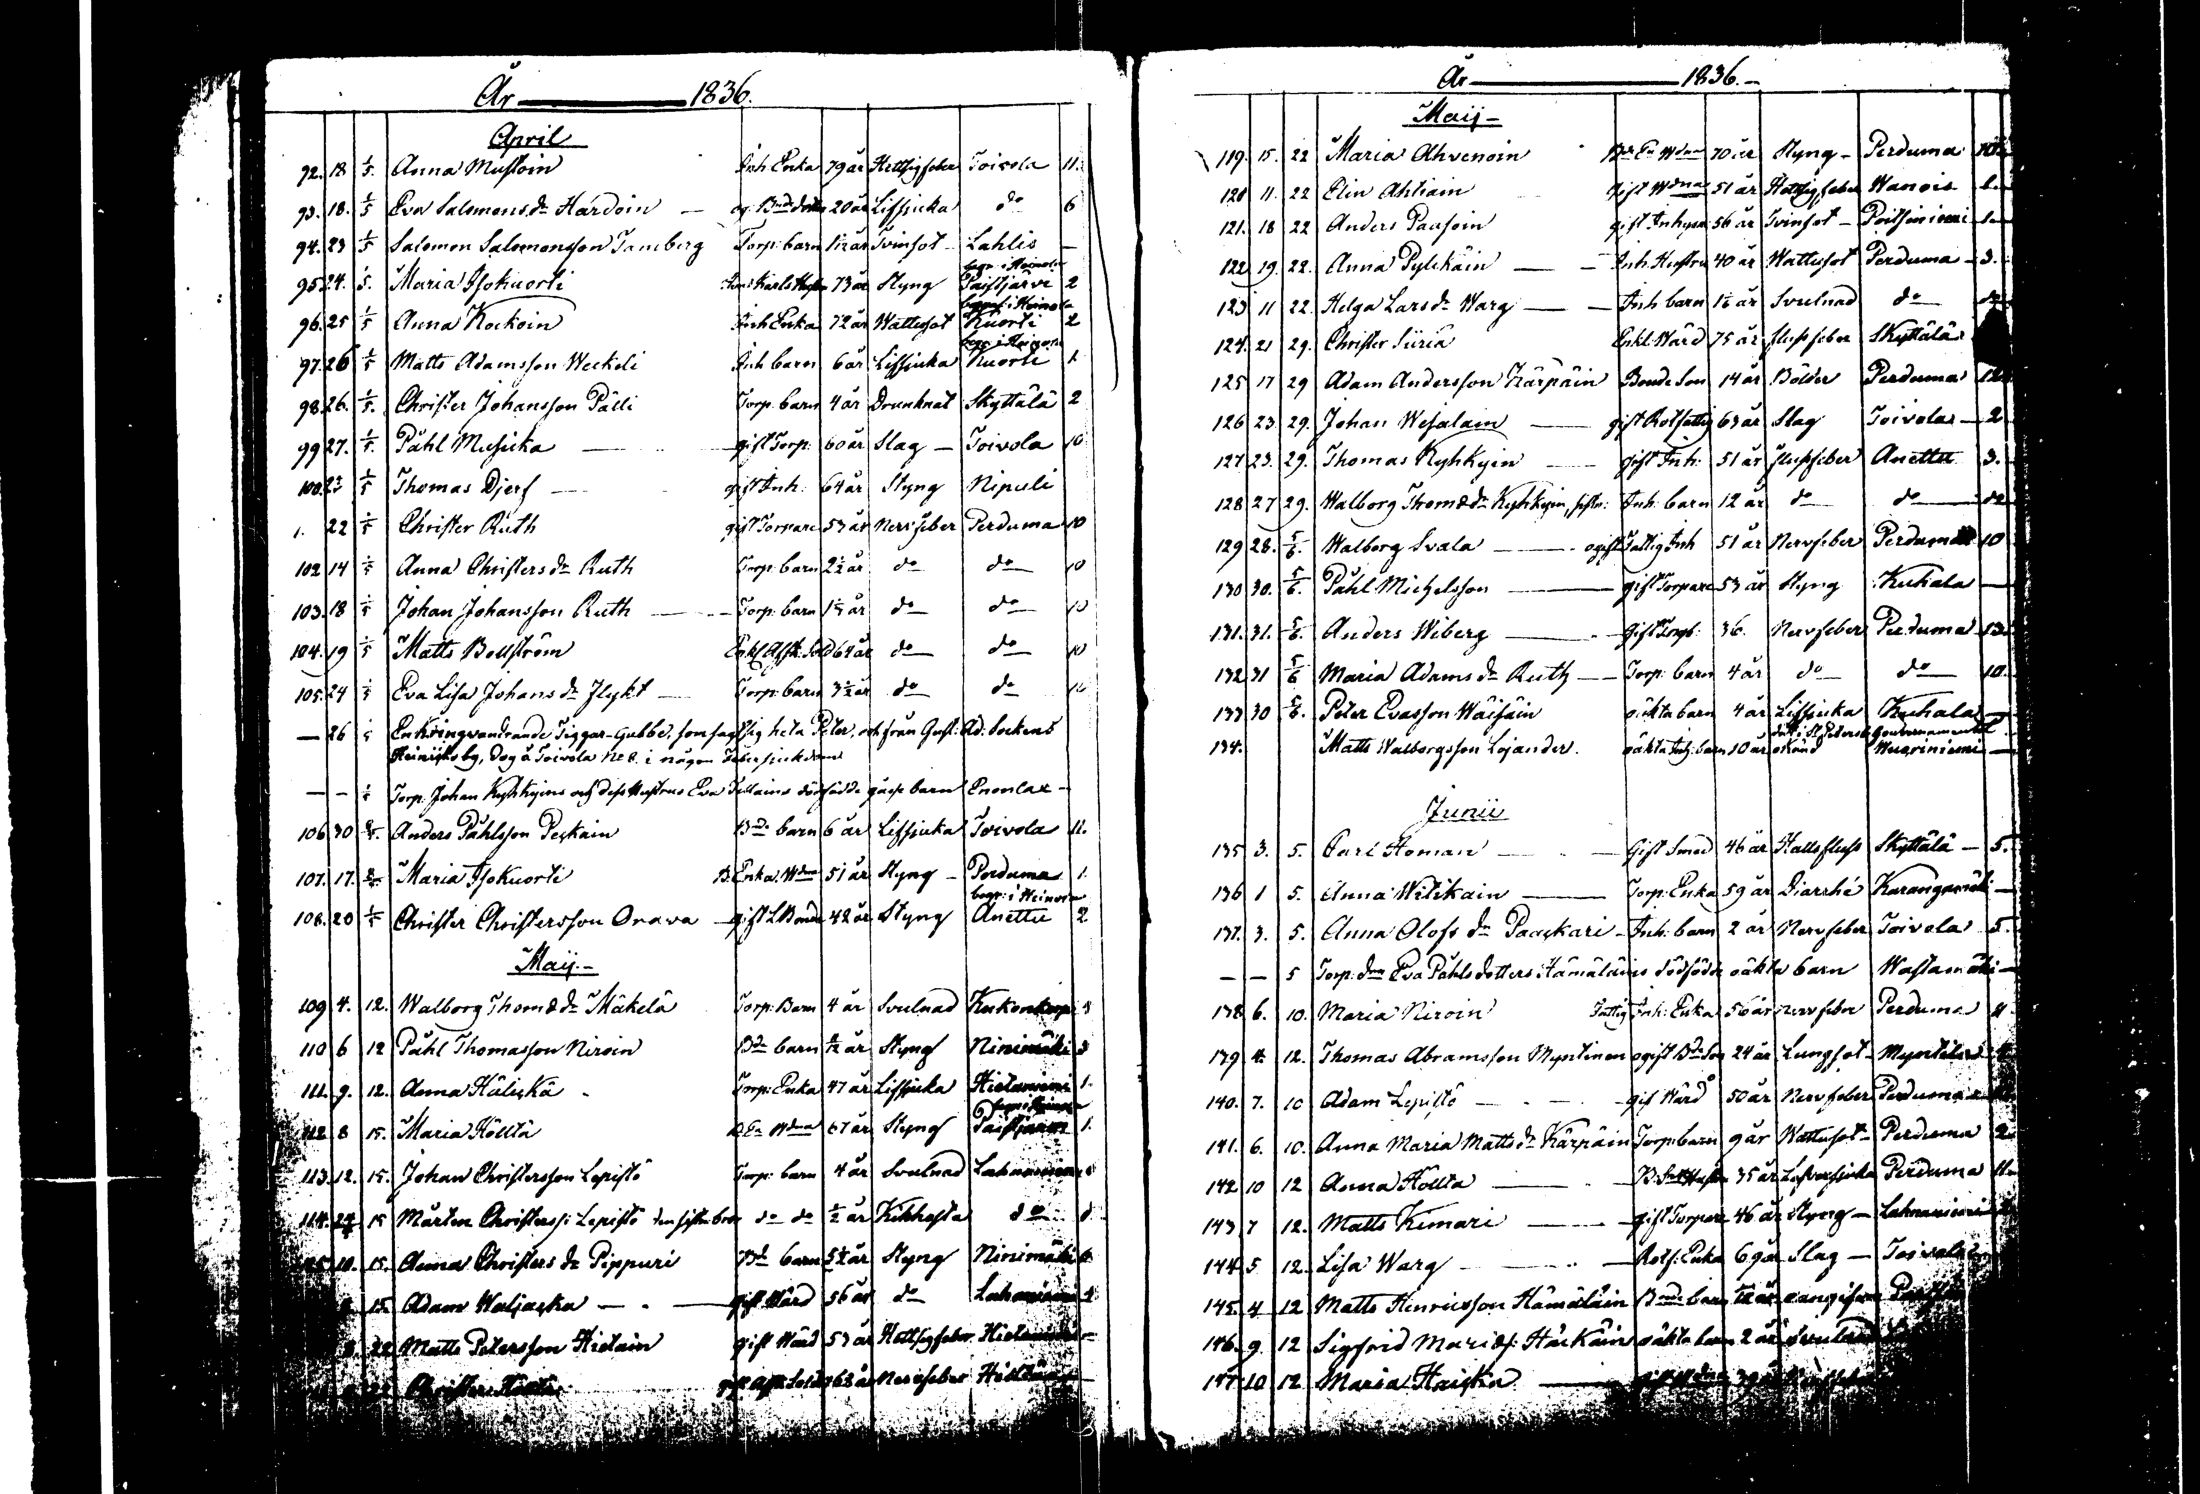 År 1836.
April
92. 18 1/5. Anna Mustoin Inh. Enka 79 år Hettsigfeber Toivola 11.
93. 18. 1/5 Eva Salomons dr Hardoin og. Bnde dotter 20 år Lifsjuka do 6
94. 23 1/5 Salomon Salomonsson Tamberg Torp: barn 1 1/2 år Tvinsot Lahlis —
begr. i Heinola
95. 24. 1/5. Maria Isokuorti 73 år Styng Paistjärvi 2
begraf. i Heinola
96. 25 1/5 Anna Kockoin Inh Enka 72 år Wattusot Kuorti 2
begr. i Heinola
97. 26 1/5 Matts Adamsson Weckeli Inh barn 6 år Lifsjuka Kuorti 1
98. 26. 1/5. Christer Johansson Pälli Torp: barn 4 år Drunknat Skyttälä 2
99 27. 1/5. Påhl Mesicka gift Torp: 60 år Slag — Toivola 10
100. 23 1/5 Thomas Djerf gift Inh: 64 år Styng Nipuli
1. 22 1/5 Christer Ruth gift Torpare 53 år Nervfeber Perduma 10
102 14 1/5 Anna Christers dr Ruth Torp: barn 2 1/2 år do do 10
103. 18 1/5 Johan Johansson Ruth Torp: barn do do 10
104. 19 1/5 Matts Bollström Enkl. Afsk: Sold 64 år do do 10
105. 24 1/5 Eva Lisa Johans dr Flykt Torp: barn 3 1/2 år do do 10
— 26 1/5 En kringvandrande Tiggar-Gubbe, som sagt sig heta Peter, och från Gust: Ad: Sockens
Heinis by, dog å Toivola No 8. i någon Feber sjukdom
— — 1/5 Torp: Johan Kyhkyins och dess Hustrus Eva dödfödde gåsse barn Enonlax —
106 30 8/5. Anders Påhlsson Peskain Bde barn 6 år Lifsjuka Toivola 11.
107. 17. 8/5 Maria Isokuorti B. Enka. Wdna 51 år Styng — Perduma 1.
begr: i Heinola
108. 20 1/5 Christer Christersson Orava gift L. Bonde 42 år Styng Anettu 2
Maij. —
109 4. 12. Walborg Thomæ dr Mäkelä Torp: Barn 4 år Svulnad
110 6 12 Påhl Thomasson Niroin Bde barn år Styng Ninimäki 3
111. 9. 12. Anna Hälickä Torp: Enka 47 år Lifsjuka Hietaniemi 1.
112 8 15. Maria Hölltä B. En Wdna 67 år Styng 1.
113. 12. 15. Johan Christersson Lepistö Torp: barn 4 år Svulnad Lahnaniemi
114. 15 Mårten Christerss: Lepistö den sistn: bror do do 1/2 år Kikhosta do
115. 10. 15. Anna Christers dr Pippuri Bde barn år Styng Ninimäki 6
15. Adam Waljacka gift Wärd 56 år do
22 Matts Petersson Hietain gift Wärd 53 år Hettsigfeber
22 Christer år Nervfeber

År 1836. —
Maij —
119. 15. 22 Maria Ahvenoin Bde En Wdna 70 år Styng — Perduma
120 11. 22 Elin Ahtiain gift Wdna 51 år Hettsig feber Wanois
121. 18 22 Anders Paasoin gift Inhyses 56 år Tvinsot —
122 19. 22. Anna Pylckäin Inh. Hustru 40 år Wattusot Perduma 3.
123 11 22. Helga Lars dr Warg Inh barn 1 1/2 år Svulnad do do
124. 21 29. Christer Siiria Enkl. Wärd 75 år flussfeber Skyttälä
125 17 29 Adam Andersson Kärpäin Bonde Son 14 år Bölder Perduma 12
126 23. 29. Johan Wesalain gift Rotfattig 63 år Slag Toivola 2
127 23. 29. Thomas Kyhkyin gift Inh: 51 år flussfeber Anettu 3.
128 27 29. Walborg Thomæ dr Kyhkyin, sistn: Inh: barn 12 år do do do
129 28. 5/6. Walborg Svala ogift Fattig Inh 51 år Nervfeber Perduma 10
130 30. 5/6. Påhl Michelsson gift Torpare 53 år Styng Kuhala —
131. 31. 5/6. Anders Wiberg gift Torp: 36. Nervfeber Perduma 13.
132 31 5/6 Maria Adams dr Ruth Torp: barn 4 år do do 10.
133 30 5/6. Peter Evasson Wäisäin oäkta barn 4 år Lifsjuka Kuhala —
död i St. Petersb. Gouvernementet
134. Matts Walborgsson Lojander. oäkta Inh: barn 10 år okänd —
Junii
135 3. 5. Carl Homan Gift Smed 46 år Hallsfluss Skyttälä — 5.
136 1 5. Anna Witikain Torp: Enka 59 år Diarrhé Karangamäki —
137. 3. 5. Anna Olofs dr Paaskari Inh: barn 2 år Nervfeber Toivola 5.
— — 5 Torp: dra Eva Påhls dotters Hämäläins dödfödde oäkta barn Wastamäki —
138 6. 10. Maria Niroin Fattig Inh: Enka 56 år nervfeber Perduma 11
139 4. 12. Thomas Abramsson Myntinen ogift Bde Son 24 år Lungsot — Myntilä 4
140. 7. 10 Adam Lepistö gift Wärd 50 år Nervfeber Perduma
141. 6. 10. Anna Maria Matts dr Kärpäin Torp: barn 9 år Wattusot — Perduma 2
142 10 12 Anna Hölltä 35 år Perduma 11.
143 7 12. Matts Kimari gift Torpare 46 år Styng — Lahnaniemi
144. 5 12. Lisa Warg Rotf: Enka 69 år Slag — Toivola
145. 4 12 Matts Henricsson Hämäläin Bnde barn
146. 9. 12 Sigfrid Mariæs: Härkäin oäkta barn 2 år Svulnad
147 10 12 Maria Haicka